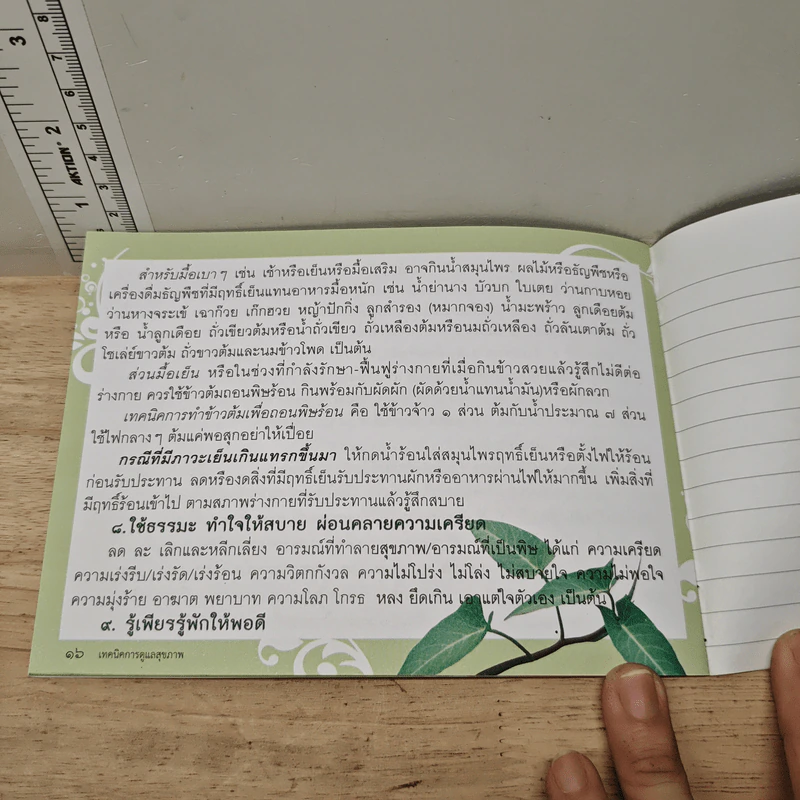 สำหรับมื้อเบา ๆ เช่น เช้าหรือเย็นหรือมื้อเสริม อาจกินน้ำสมุนไพร ผลไม้หรือธัญพืชหรือ
เครื่องดื่มธัญพืชที่มีฤทธิ์เย็นแทนอาหารมื้อหนัก เช่น น้ำย่านาง บัวบก ใบเตย ว่านกาบหอย
ว่านหางจระเข้ เฉาก๊วย เก๊กฮวย หญ้าปักกิ่ง ลูกสำรอง (หมากจอง) น้ำมะพร้าว ลูกเดือยต้ม
หรือ น้ำลูกเดือย ถั่วเขียวต้มหรือน้ำถั่วเขียว ถั่วเหลืองต้มหรือนมถั่วเหลือง ถั่วลันเตาต้ม ถั่ว
โชเล่ย์ขาวต้ม ถั่วขาวต้มและนมข้าวโพด เป็นต้น
ส่วนมื้อเย็น หรือในช่วงที่กำลังรักษา-ฟื้นฟูร่างกายที่เมื่อกินข้าวสวยแล้วรู้สึกไม่ดีต่อ
ร่างกาย ควรใช้ข้าวต้มถอนพิษร้อน กินพร้อมกับผัดผัก (ผัดด้วยน้ำแทนน้ำมัน)หรือผักลวก
เทคนิคการทำข้าวต้มเพื่อถอนพิษร้อน คือ ใช้ข้าวจ้าว ๑ ส่วน ต้มกับน้ำประมาณ ๗ ส่วน
ใช้ไฟกลาง ๆ ต้มแค่พอสุกอย่าให้เปื่อย
กรณีที่มีภาวะเย็นเกินแทรกขึ้นมา ให้กดน้ำร้อนใส่สมุนไพรฤทธิ์เย็นหรือตั้งไฟให้ร้อน
ก่อนรับประทาน ลดหรืองดสิ่งที่มีฤทธิ์เย็นรับประทานผักหรืออาหารผ่านไฟให้มากขึ้น เพิ่มสิ่งที่
มีฤทธิ์ร้อนเข้าไป ตามสภาพร่างกายที่รับประทานแล้วรู้สึกสบาย
๘.ใช้ธรรมะ ทำใจให้สบาย ผ่อนคลายความเครียด
ลด ละ เลิกและหลีกเลี่ยง อารมณ์ที่ทำลายสุขภาพ/อารมณ์ที่เป็นพิษ ได้แก่ ความเครียด
ความเร่งรีบ/เร่งรัด/เร่งร้อน ความวิตกกังวล ความไม่โปร่ง ไม่โล่ง ไม่สบายใจ ความไม่พอใจ
ความมุ่งร้าย อาฆาต พยาบาท ความโลภ โกรธ หลง ยึดเกิน เอาแต่ใจตัวเอง เป็นต้น
๙. รู้เพียรรู้พักให้พอดี
๑๖ เทคนิคการดูแลสุขภาพ
AKTION
1
2
3
2
3
4
5
6
7
8